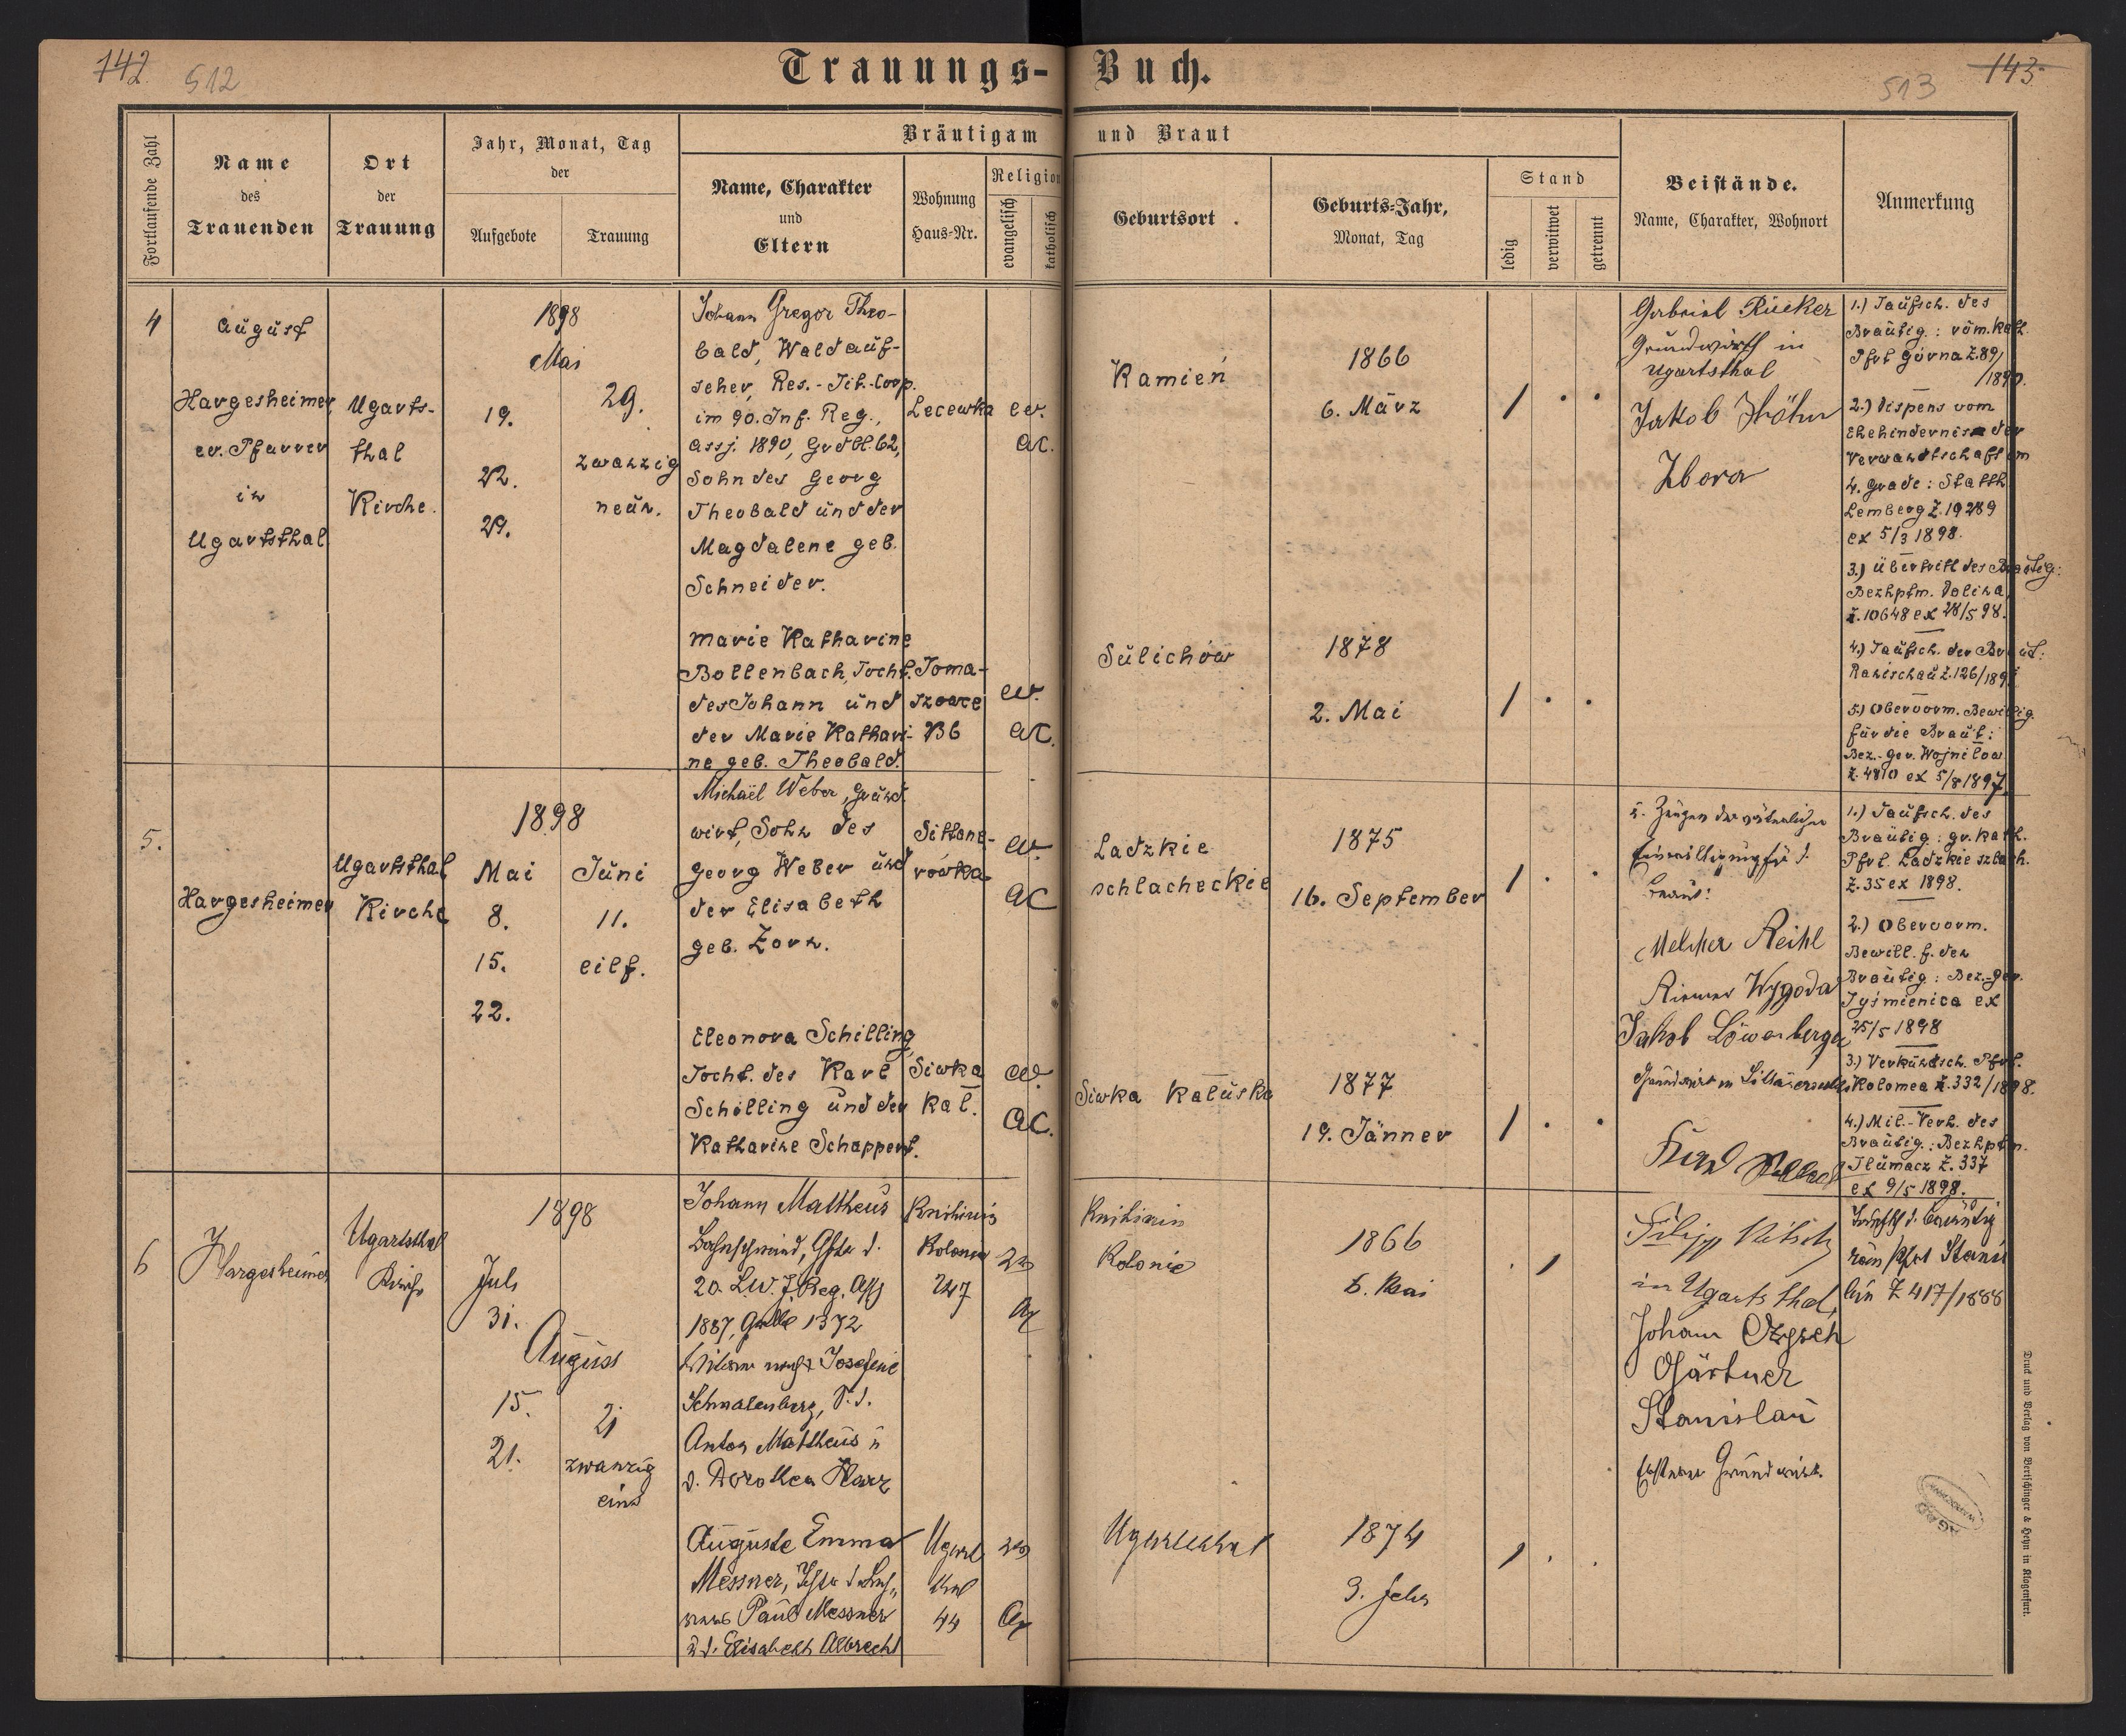 142.
512
Trauungs-Buch.
513
143.
Fortlaufende Zahl
Name
des
Trauenden
Ort
der
Trauung
Jahr, Monat, Tag
der
Aufgebote
Trauung
Bräutigam und Braut
Name, Charakter
und
Eltern
Wohnung
Haus-Nr.
Religion
evangelisch
katholisch
Geburtsort
Geburts-Jahr,
Monat, Tag
Stand
ledig
verwitwet
getrennt
Beistände.
Name, Charakter, Wohnort
Anmerkung
4
August
Hargesheimer
ev. Pfarrer
in
Ugartsthal
Ugarts-
thal
Kirche.
1898
Mai
19.
22.
29.
29.
zwanzig
neun.
Johann Gregor Theo-
bald, Waldauf-
seher, Res.-Tit.-Corp.
im 90. Inf. Reg.,
Assj. 1890, Grdbl. 62,
Sohn des Georg
Theobald und der
Magdalene geb.
Schneider.
Lecewka
ev.
AC.
Kamień
1866
6. März
Marie Katharine
Bollenbach, Tocht.
des Johann und
der Marie Kathari-
ne geb. Theobald.
Toma-
szowce
B6
ev.
AC.
Sulichów
1878
2. Mai
Gabriel Rücker
Grundwirth in
Ugartsthal
Jakob Höhn
Zbora
1.) Taufsch. des
Bräutig.: röm. kath.
Pfrt Górna Z. 89/
/1890.
2.) Dispens vom
Ehehinderniss der
Verwandtschaft im
4. Grade: Statth.
Lemberg Z. 19289
ex 5/3 1898.
3.) Übertritt des Bräutig:
Bezhptm. Dolina,
Z. 10648 ex 28/5 98.
4.) Taufsch. der Braut:
Ranischau Z. 126/189
5.) Obervorm. Bewillig.
für die Braut:
Bez.-Ger. Wojnilow
Z. 4810 ex 5/8 1897
5.
Hargesheimer
Ugartsthal
Kirche
1898
Mai
8.
15.
22.
Juni
11.
eilf.
Michaël Weber, Grund-
wirt, Sohn des
Georg Weber und
der Elisabeth
geb. Zorn.
Sittane-
rówka
ev.
AC
Ladzkie
schlacheckie
1875
16. September
Eleonora Schilling,
Tocht. des Karl
Schilling und der
Katharine Schappert.
Siwka
Kal.
ev.
AC.
Siwka Kaluska
1877
19. Jänner
u. Zeugen der väterlichen
Einwilligung für d.
Braut:
Melcher Reihl
Riemer Wygoda
Jakob Löwenberger
Grundwirt in
1.) Taufsch. des
Bräutig: gr. kath.
Pfrt. Ladzkie szlach.
Z. 35 ex 1898.
2.) Obervorm.
Bewill. f. den
Bräutig: Bez.-Ger.
Tyśmienica ex
25/5 1898
3.) Verkündsch. Pfrt.
Kolomea Z. 332/1898.
4.) Mil.-Verh. des
Bräutig.: Bezhptm.
Tlumacz Z. 337
ex 9/5 1898.
6
Hargesheimer
Ugartsthal
Kirche
1898
Juli
31.
August
15.
21.
21
zwanzig
eins
Johann Mattheus
20. L.W.J. Reg. Assj
1887, 1372
Witwer nach Josefine
Schmalenberg, S. d.
Anton Mattheus u
d. Dorothea Harz
Knihinin
Kolonie
247
ev
AC
Knihinin
Kolonie
1866
6. Mai
Auguste Emma
Messner,
Paul Messner
u d. Elisabeth Albrecht
Ugarts
thal
44
ev
AC
Ugartsthal
1874
3. Febr
Filipp
in Ugartsthal,
Johann
Gärtner
Stanislau
Grundwirt.
röm Pfrt Stanis
Z 417/1866
Druck und Verlag von Bertschinger & Heyn in Klagenfurt.